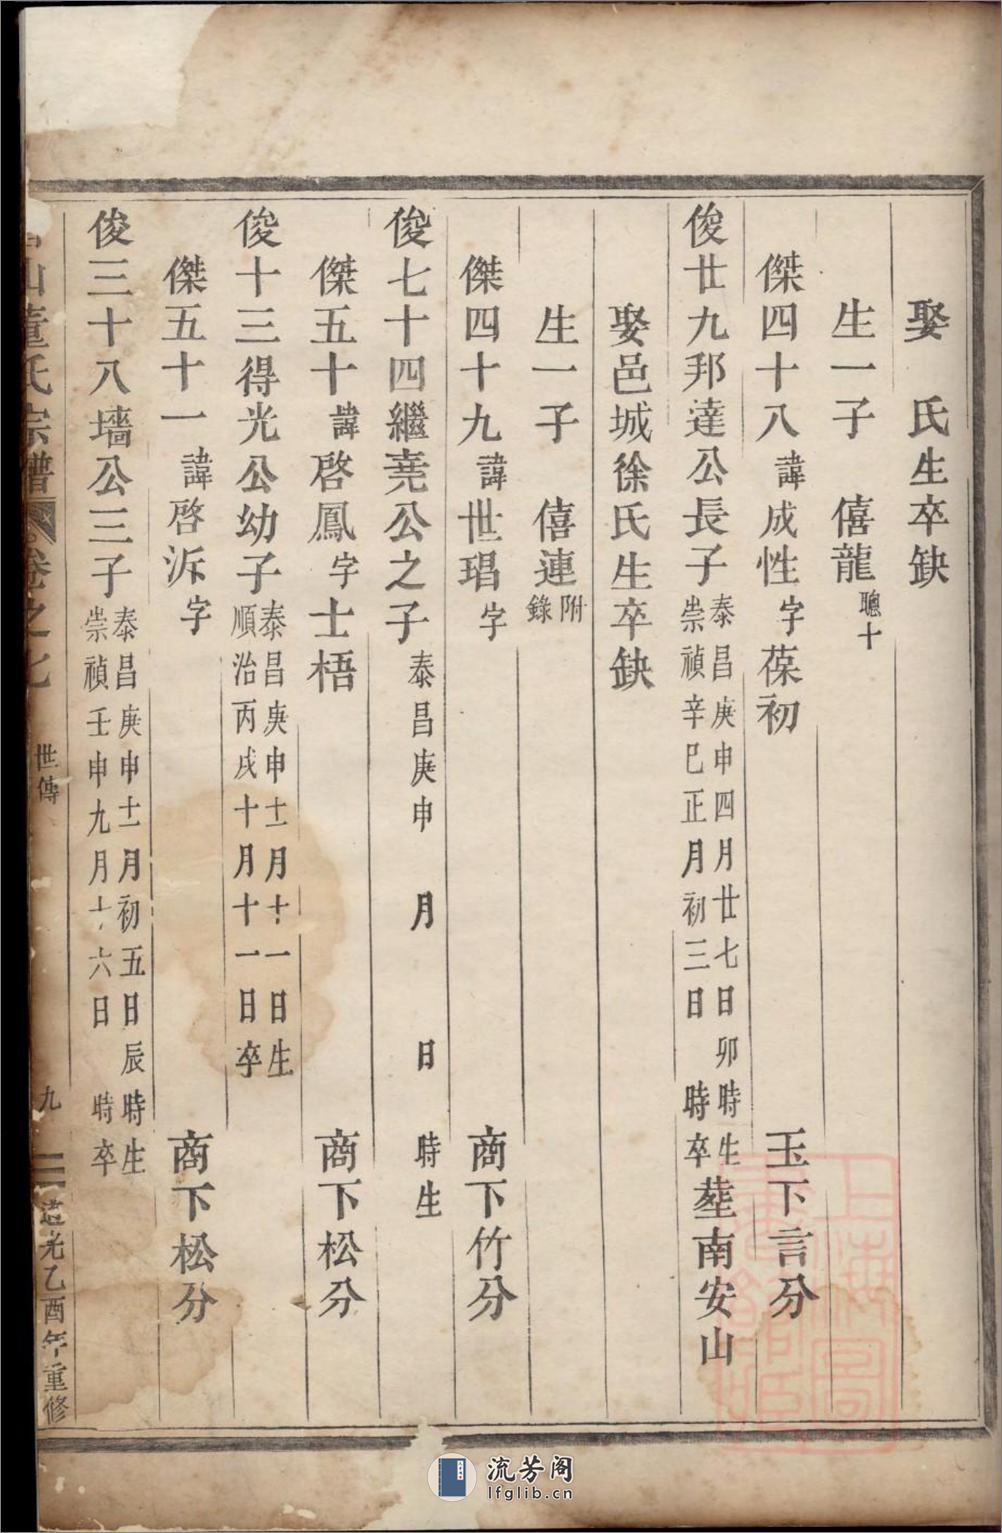 娶　氏生卒缺
生一子　僖龍聰十
傑四十八諱成性字葆初　玉下言分
俊廿九邦達公長子泰昌庚申四月廿七日卯時生
崇禎辛巳正月初三日　時卒塟南安山
娶邑城徐氏生卒缺
生一子　僖連附錄
傑四十九諱世琩字　商下竹分
俊七十四繼尭公之子泰昌庚申　月　日　時生
傑五十諱啓鳳字士梧　商下松分
俊十三得光公幼子泰昌庚申十二月十一日生
順治丙戌十月十一日卒
傑五十一諱啓泝字　商下松分
俊三十八墻公三子泰昌庚申十二月初五日辰時生
崇禎壬申九月十六日　時卒
山董氏宗譜　卷之七　世傳　九　道光乙酉年重修
上海圖書館藏
流芳阁
lfglib.cn